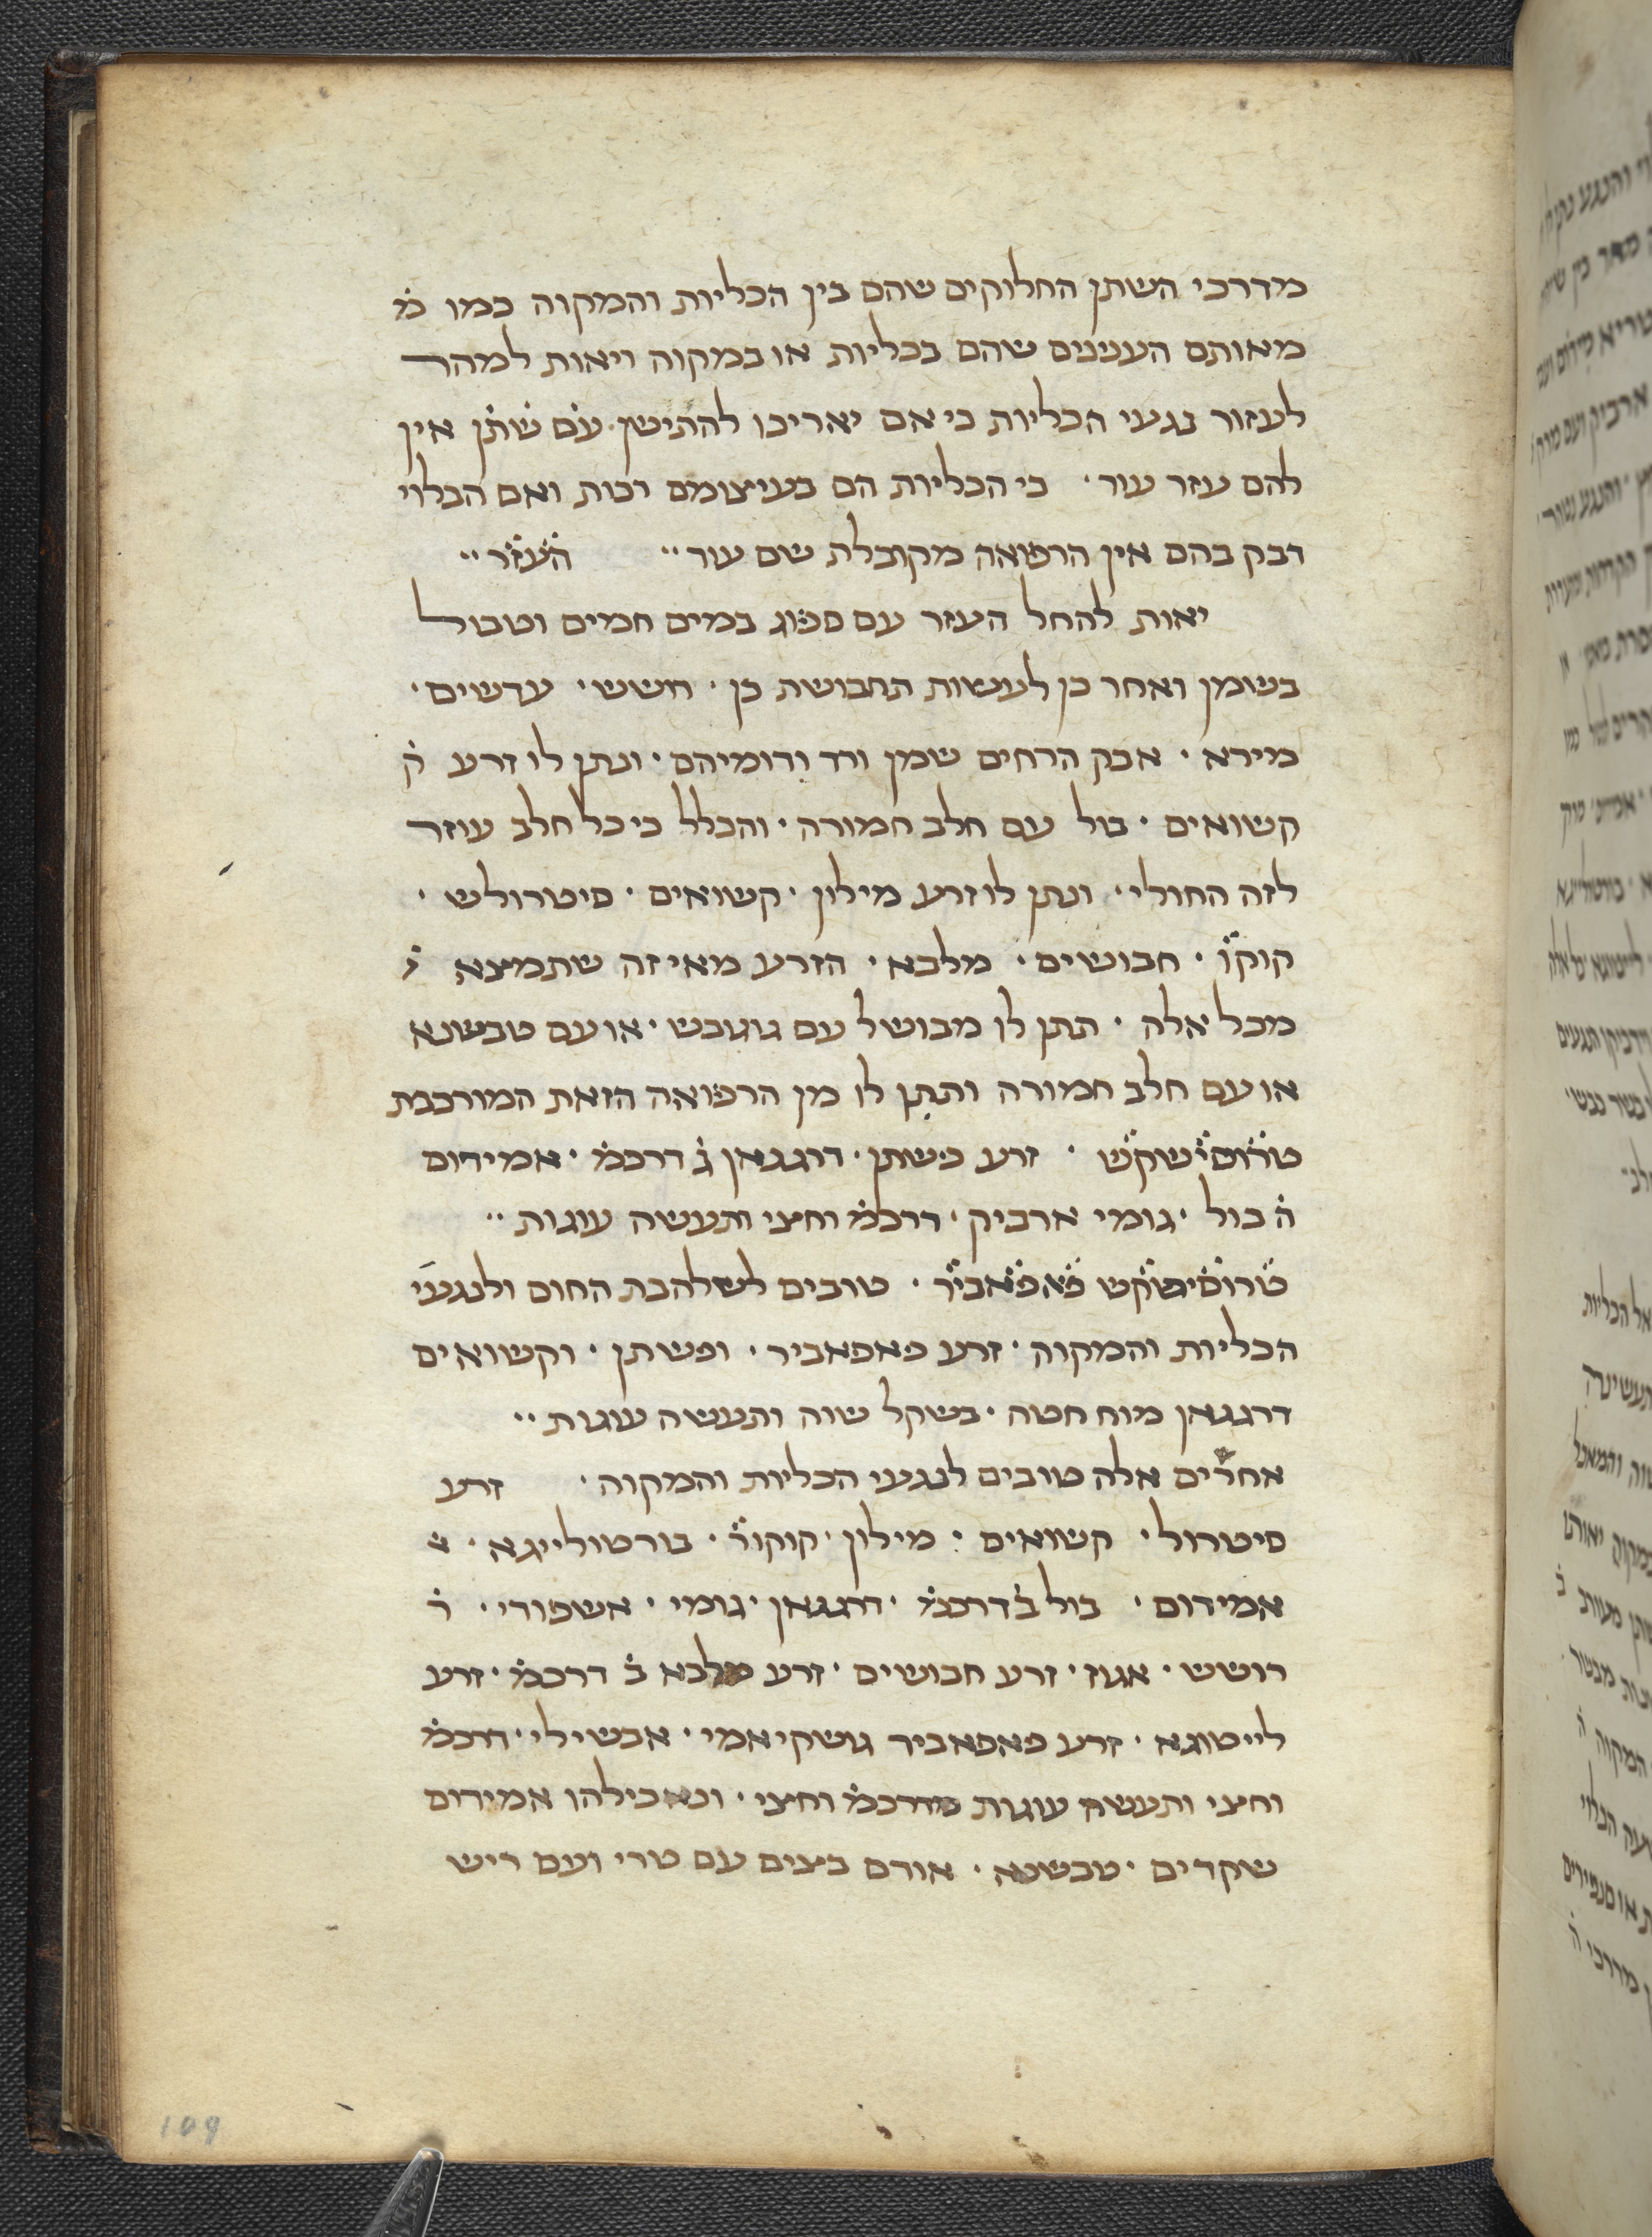 מדרכי השתן החלוקים שהם בין הכליות והמקוה כמו מ̇
מאותם הענינים שהם בכליות או במקוה ויאות למהר
לעזור נגעי הכליות כי אם יאריכו להתישן עם שתן אין
להם עזר עוד · כי הכליות הם בעיצומם רכות ואם הכלוי
דבק בהם אין הרפואה מקובלת שם עוד ·· העזר ··
יאות להחל העזר עם ספוג במים חמים וטבול
בשומן ואחר כן לעשות תחבושת כן · חשש · עדשים ·
מירא · אבק הרחים שמן ורד ודומיהם · ונתן לו זרע ק̇
קשואים · בול עם חלב חמורה · והכלל כי כל חלב עוזר
לזה החולי · ונתן לו זרע מילון · קשואים · סיטרולש ·
קוקו · חבושים · מלבא · הזרע מאי זה שתמצא
מכל אלה · תתן לו מבושל עם גוגובש · או עם טבשנא
או עם חלב חמורה ותתן לו מן הרפואה הזאת המורכבת
טרוסישקש · זרע פשתן · דרגגאן ג̇ דרכמ̇ · אמידום
ה̇ בול · גומי ארביק · דרכמ̇ וחצי ותעשה עוגות ··
טרוסישקש פאפאביר · טובים לשלהבת החום ולנגעי
הכליות והמקוה · זרע פאפאביר · ופשתן · וקשואים
דרגגאן מוח חטה · בשקל שוה ותעשה עוגות ··
אחרים אלה טובים לנגעי הכליות והמקוה · זרע
סיטרול · קשואים · מילון · קוקור · בורטולייגא ·
אמידום · בול ב̇ דרכמ̇ · דרגגאן · גומי · אשפודי · ר̇
רושש · אגוז · זרע חבושים · זרע מלבא ב̇ דרכמ̇ · זרע
לייטוגא · זרע פאפאביר גושקיאמי · אבשילי · דרכמ̇
וחצי ותעשה עוגות מדרכמ̇ וחצי · ונאכילהו אמידום
שקדים · טבשנא · אודם בצים עם טרי ועם ריש
109